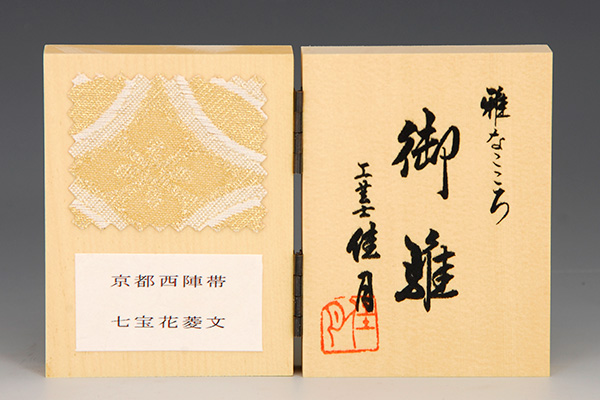 雅なこころ
御雛
工芸士 佳月
京都西陣帯
七宝花菱文